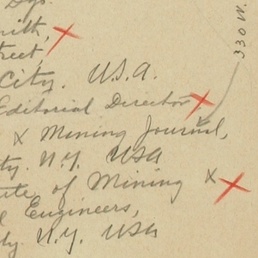 Dys.
mith,
treet,
City. U.S.A.
Editorial Director
x Mining Journal,
ty. N.Y. USA
ute of Mining x
l Engineers,
ty. N.Y. USA
330 W.